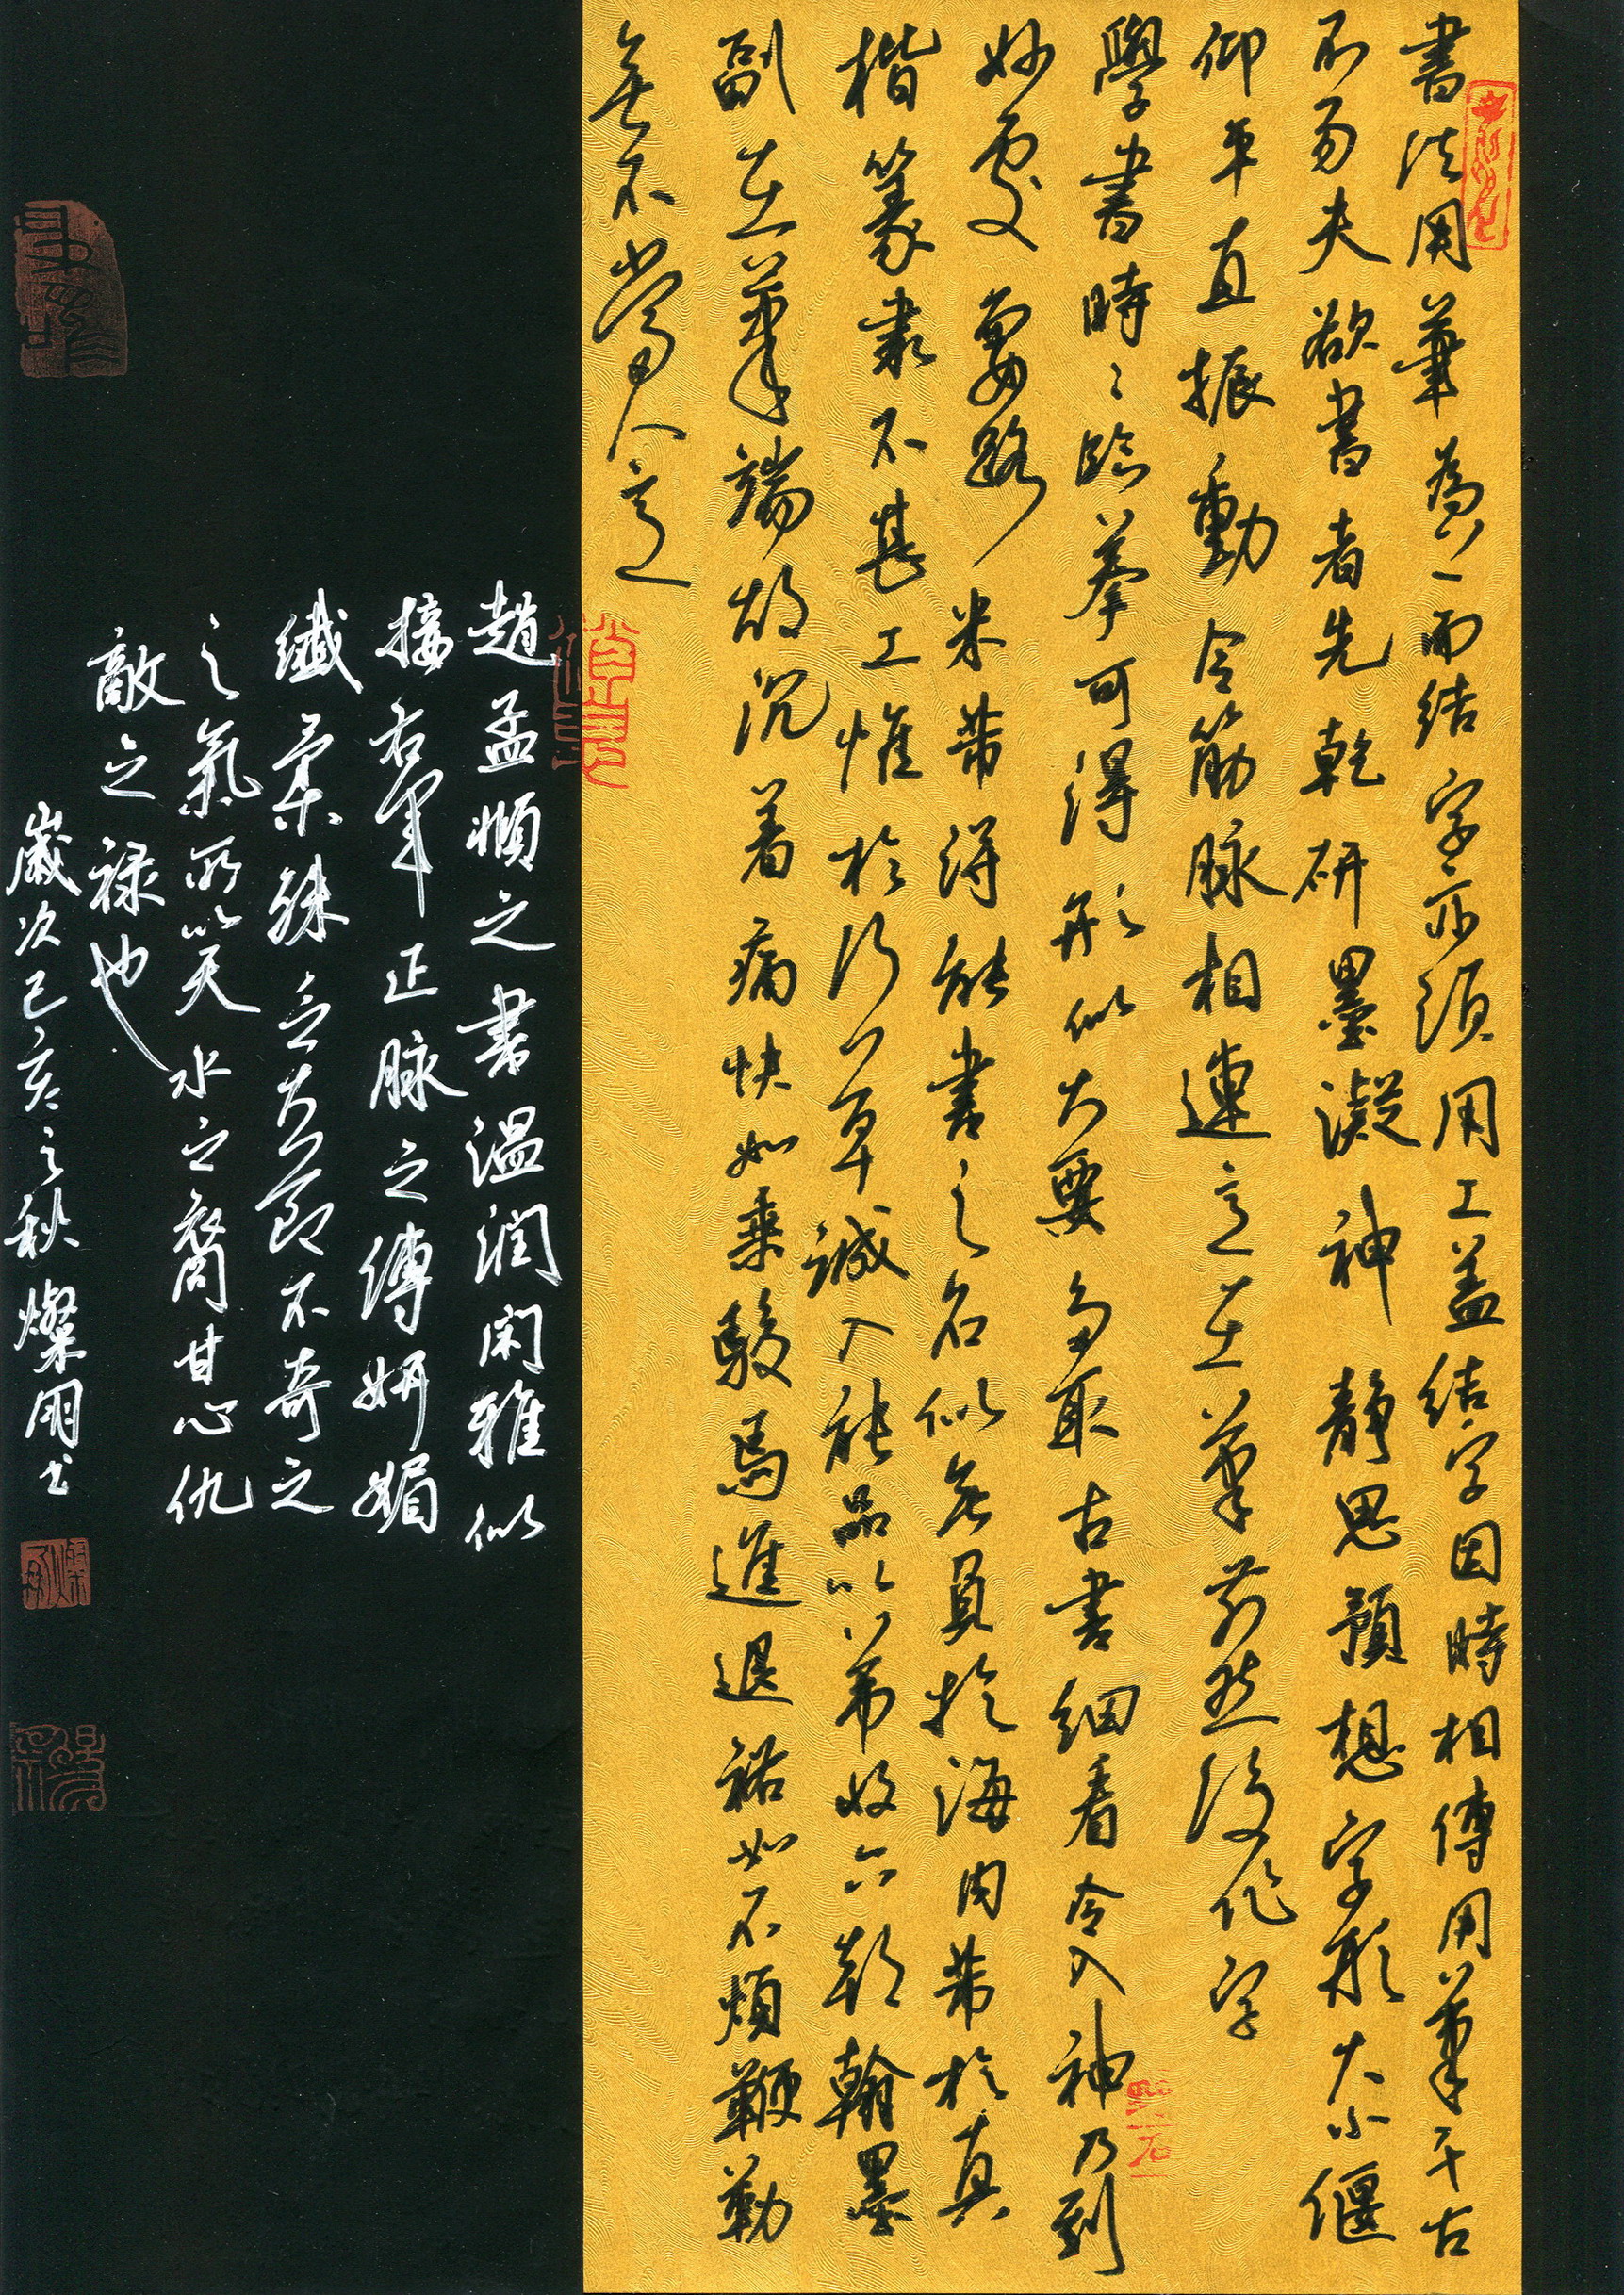 書法用筆為上而結字亦須用工盖結字因時相傳用筆千古
不易夫欲書者先乾研墨凝神靜思預想字形大小偃
仰平直振動令筋脉相連意在筆前然後作字
學書時時臨摹可得形似大要多取古書細看令入神乃到
妙處要路米芾得能書之名似無負於海内芾於真
楷篆隶不甚工惟於行草誠入能品以芾收六朝翰墨
副在筆端故沉着痛快如乘駿馬進退裕如不煩鞭勒
無不當人意
趙孟頫之書温潤閑雅似
接右軍正脉之傳妍媚
纖柔殊乏大節不奇之
之氣所以天水之裔甘心仇
敵之禄也
歲次己亥之秋燦用书